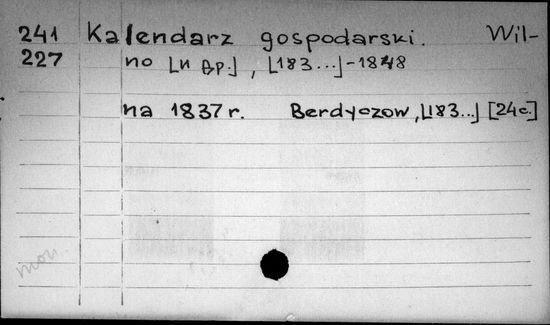 241 Kalendarz gospodarski. Wil-
227 no [и др.], [183...]-1848
na 1837 r. Berdyczow, [183...] [24c.]
mon.